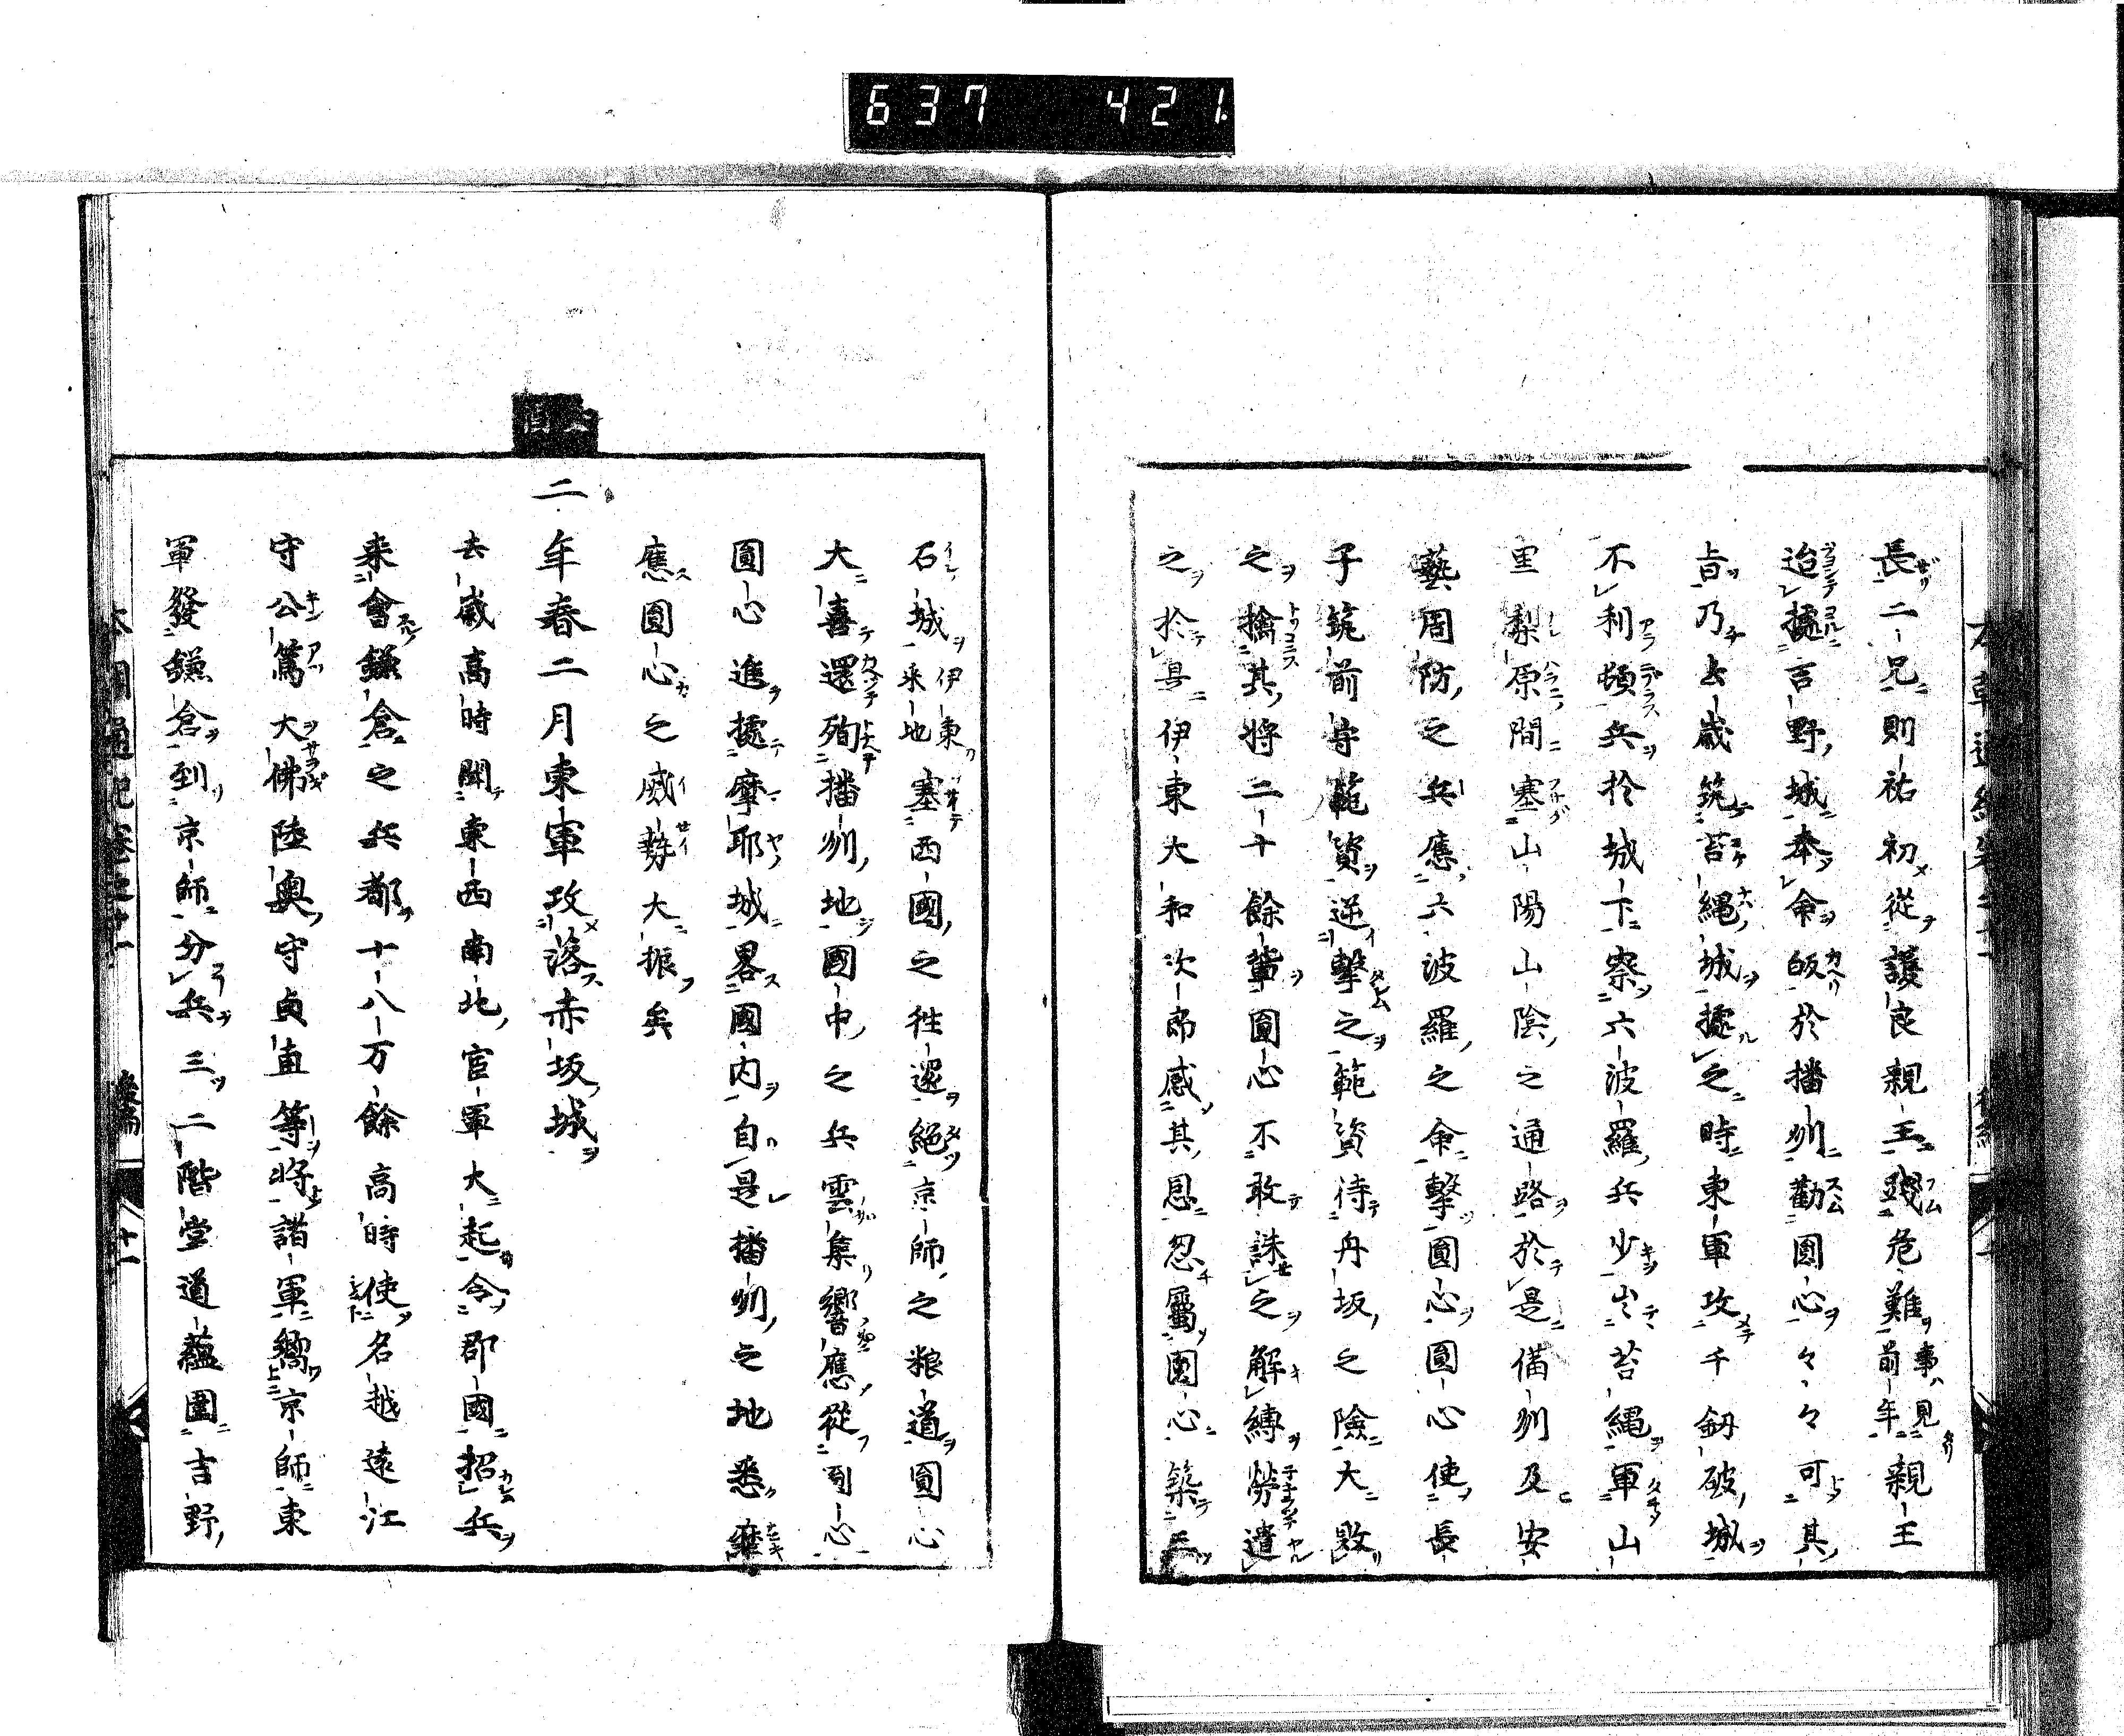 637 421
長二兄則祐初從護良親王踐危難事見前年親王
迨據吉野城奉命皈於播州勸圓心々々可其
旨乃去歳築苔縄城據之時東軍攻千劔破城
不利頓兵於城下察六波羅兵少出苔縄軍山
里梨原間塞山陽山陰之通路於是備州及安
藝周防之兵應六波羅之命擊圓心圓心使長
子筑前守範資逆擊之範資待舟坂之險大敗
之擒其將二十餘輩圓心不敢誅之解縛勞遣
之於是伊東大和次郎感其恩忽屬圓心築三
石城伊東来地塞西國之徃還絕京師之粮道圓心
大喜還殉播州地國中之兵雲集響應從
圓心進據摩耶城畧國内自是播州之地悉靡
應圓心之威勢大振矣
二年春二月東軍攻落赤坂城
去歳高時聞東西南北官軍大起令郡國招兵
来會鎌倉之兵都十八万餘高時使名越遠江
守公篤大佛陸奥守貞直等將諸軍嚮京師東
軍發鎌倉到京師分兵三二階堂道蘊圍吉野